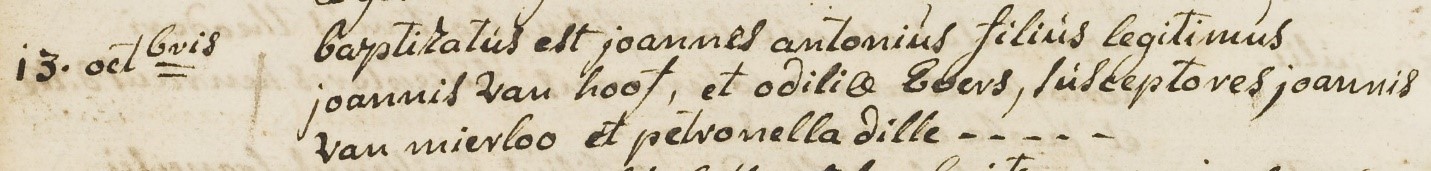 13. octbris baptizatus est joannes antonius filius legitimus
joannis van hoof, et odiliæ Evers, susceptores joannis
van mierloo et petronella dille - - - - -